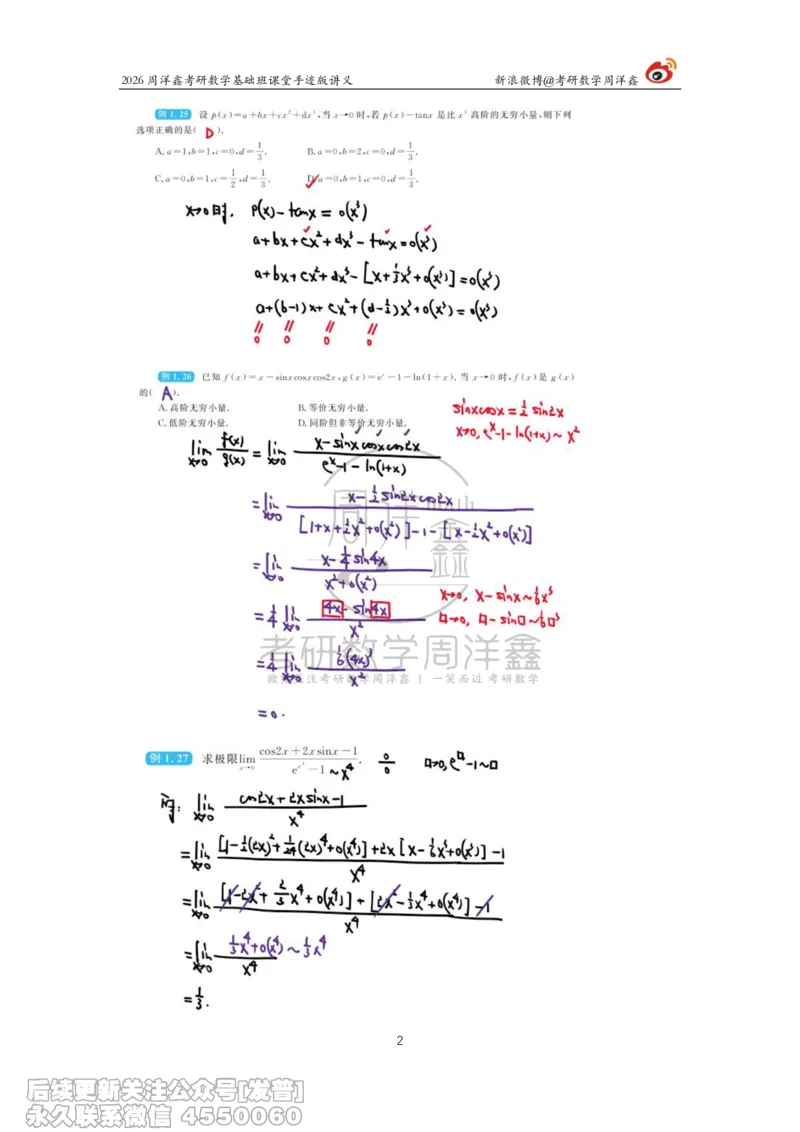 2026 周洋鑫考研数学基础班课堂手迹版讲义 新浪微博@考研数学周洋鑫
例 1.25 设 p(x)=a+bx+cx²+dx³,当 x→0 时,若 p(x)-tanx 是比 x³ 高阶的无穷小量,则下列
选项正确的是( D ).
A. a=1,b=1,c=0,d=1/3. B. a=0,b=2,c=0,d=1/3.
C. a=0,b=1,c=1/2,d=1/3. D. a=0,b=1,c=0,d=1/3.
x→0时, p(x)-tanx=o(x³)
a+bx+cx²+dx³-tanx=o(x³)
a+bx+cx²+dx³-[x+1/3x³+o(x³)]=o(x³)
a+(b-1)x+cx²+(d-1/3)x³+o(x³)=o(x³)
|| || || ||
0 0 0 0
例 1.26 已知 f(x)=x-sinxcosxcos2x,g(x)=eˣ-1-ln(1+x). 当 x→0 时,f(x)是 g(x)
的( A ).
A. 高阶无穷小量. B. 等价无穷小量.
C. 低阶无穷小量. D. 同阶但非等价无穷小量.
sinxcosx=1/2 sin2x
x→0, eˣ-1-ln(1+x)~x²
lim x→0 f(x)/g(x) = lim x→0 (x-sinxcosxcos2x)/(eˣ-1-ln(1+x))
=lim x→0 (x-1/2 sin2xcos2x)/([1+x+1/2x²+o(x²)]-1-[x-1/2x²+o(x²)])
=lim x→0 (x-1/4 sin4x)/(x²+o(x²))
=1/4 lim x→0 (4x-sin4x)/x²
x→0, x-sinx~1/6x³
□→0, □-sin□~1/6□³
=1/4 lim x→0 (1/6(4x)³)/x²
=0.
周洋鑫
考研数学周洋鑫
微博关注考研数学周洋鑫 | 一笑而过 考研数学
例 1.27 求极限 lim x→0 (cos2x+2xsinx-1)/(e^(x⁴)-1) ~x⁴ . 0/0 □→0, e^□-1~□
解: lim x→0 (cos2x+2xsinx-1)/x⁴
=lim x→0 ([1-1/2(2x)²+1/24(2x)⁴+o(x⁴)]+2x[x-1/6x³+o(x³)]-1)/x⁴
=lim x→0 ([1-2x²+2/3x⁴+o(x⁴)]+[2x²-1/3x⁴+o(x⁴)]-1)/x⁴
=lim x→0 (1/3x⁴+o(x⁴))/x⁴ ~1/3x⁴
=1/3.
2
后续更新关注公众号[发普]
永久联系微信 4550060